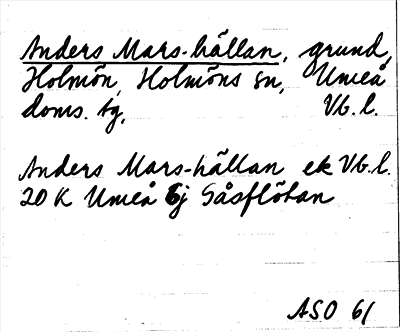 Anders Mars-hällan, grund,
Holmön, Holmöns sn, Umeå
doms. tg, Vb. l.
Anders Mars-hällan ek Vb. l.
20 K Umeå 6j Gåsflötan
ASO 61